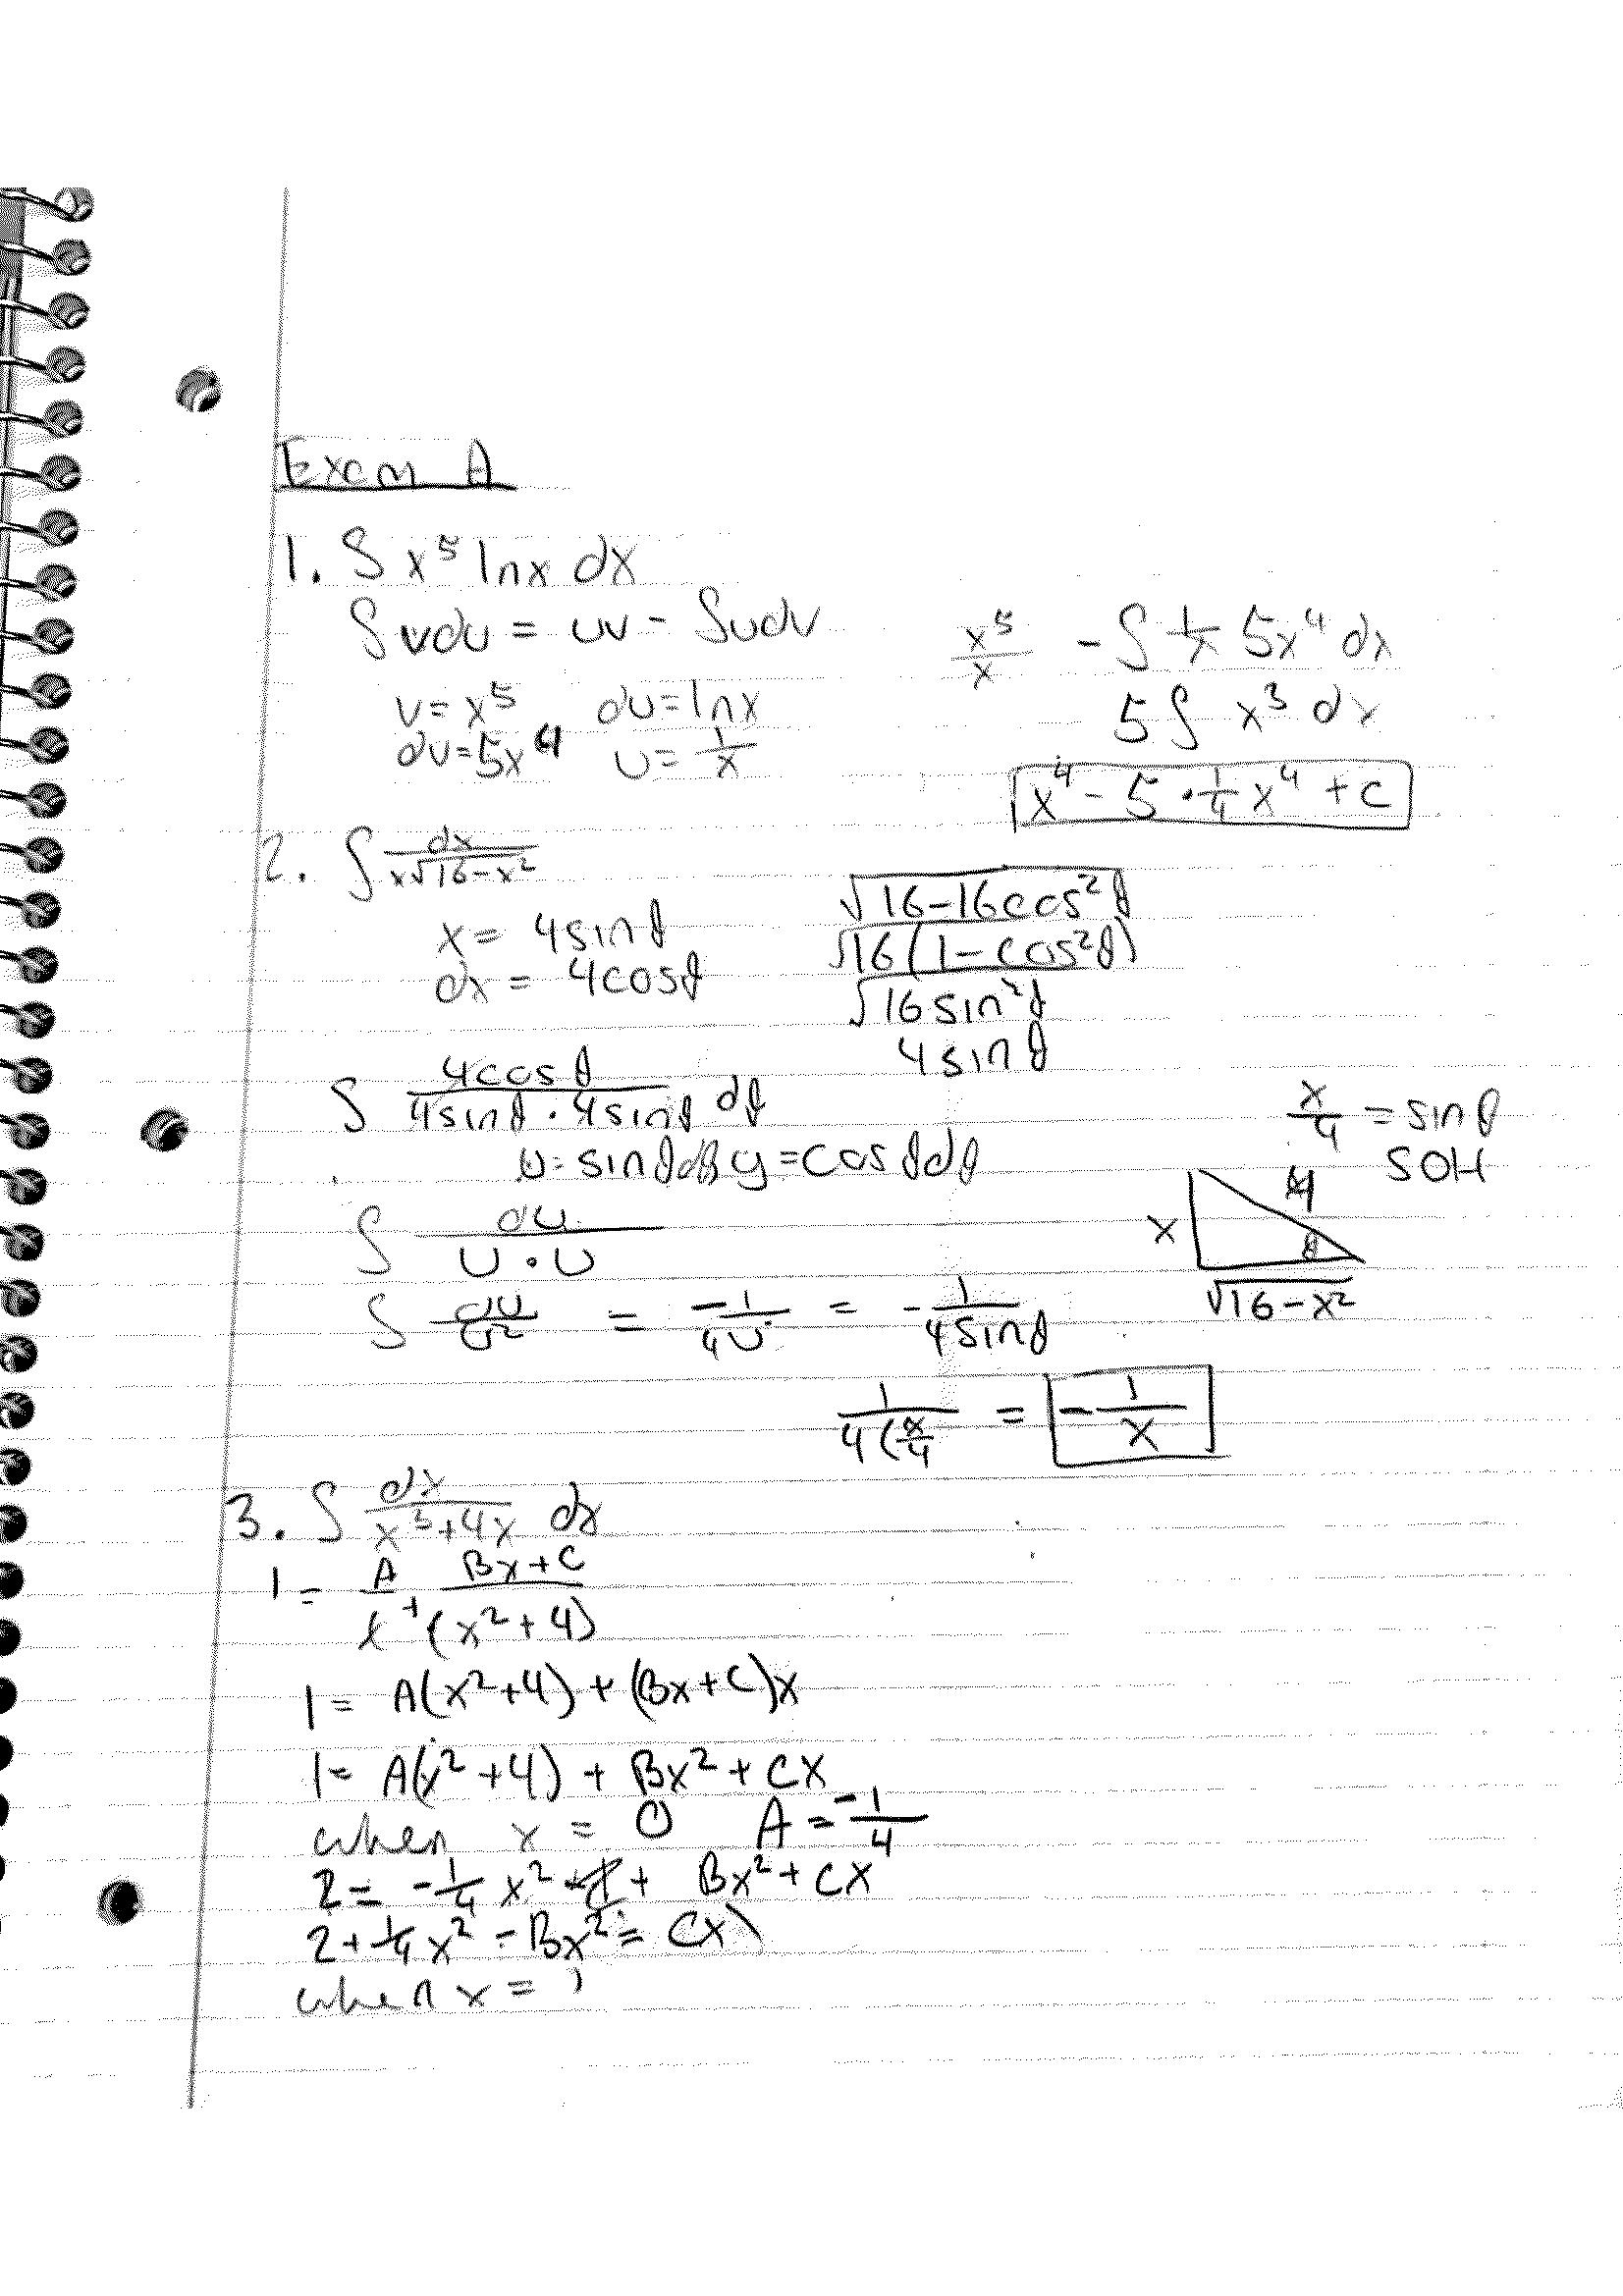 Exam A
1. ∫ x⁵ lnx dx
∫ vdu = uv - ∫udv
v = x⁵ du = lnx
dv = 5x⁴ u = 1/x
x⁵/x - ∫ 1/x 5x⁴ dx
5 ∫ x³ dx
x⁴ - 5 · 1/4 x⁴ + C
2. ∫ dx/(x√(16-x²))
x = 4sinθ
dx = 4cosθ
√(16-16cos²θ)
√(16(1-cos²θ))
√(16sin²θ)
4sinθ
∫ 4cosθ/(4sinθ · 4sinθ) dθ
u = sinθdθ y = cosθdθ
∫ du/(u · u)
∫ du/u² = -1/(4u) = -1/(4sinθ)
x/4 = sinθ
SOH
4
x θ
√(16-x²)
1/(4(x/4) = -1/x
3. ∫ dx/(x³+4x) dx
1 = A/x + (Bx+C)/(x²+4)
1 = A(x²+4) + (Bx+C)x
1 = A(x²+4) + Bx² + Cx
when x = 0 A = -1/4
2 = -1/4 x² + Bx² + Cx
2 + 1/4 x² - Bx² = Cx
when x =